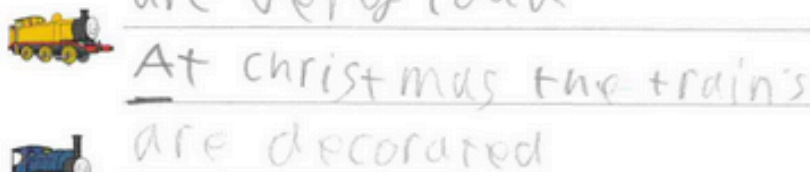 are very loud
At christmas the train's
are decorated